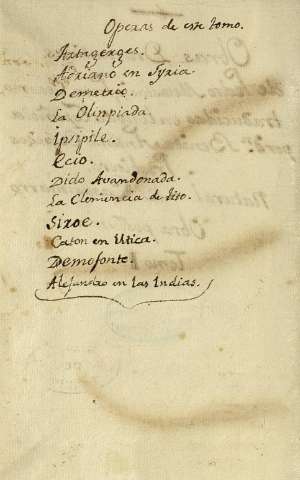 Operas de este tomo.
Artagerges.
Adriano en Syria
Demetrio.
La Olinpiada.
Ipsipile.
Ecio.
Dido Avandonada.
La Clemencia de Tito.
Siroe.
Caton en Utica.
Demofonte.
Alejandro en las Indias.